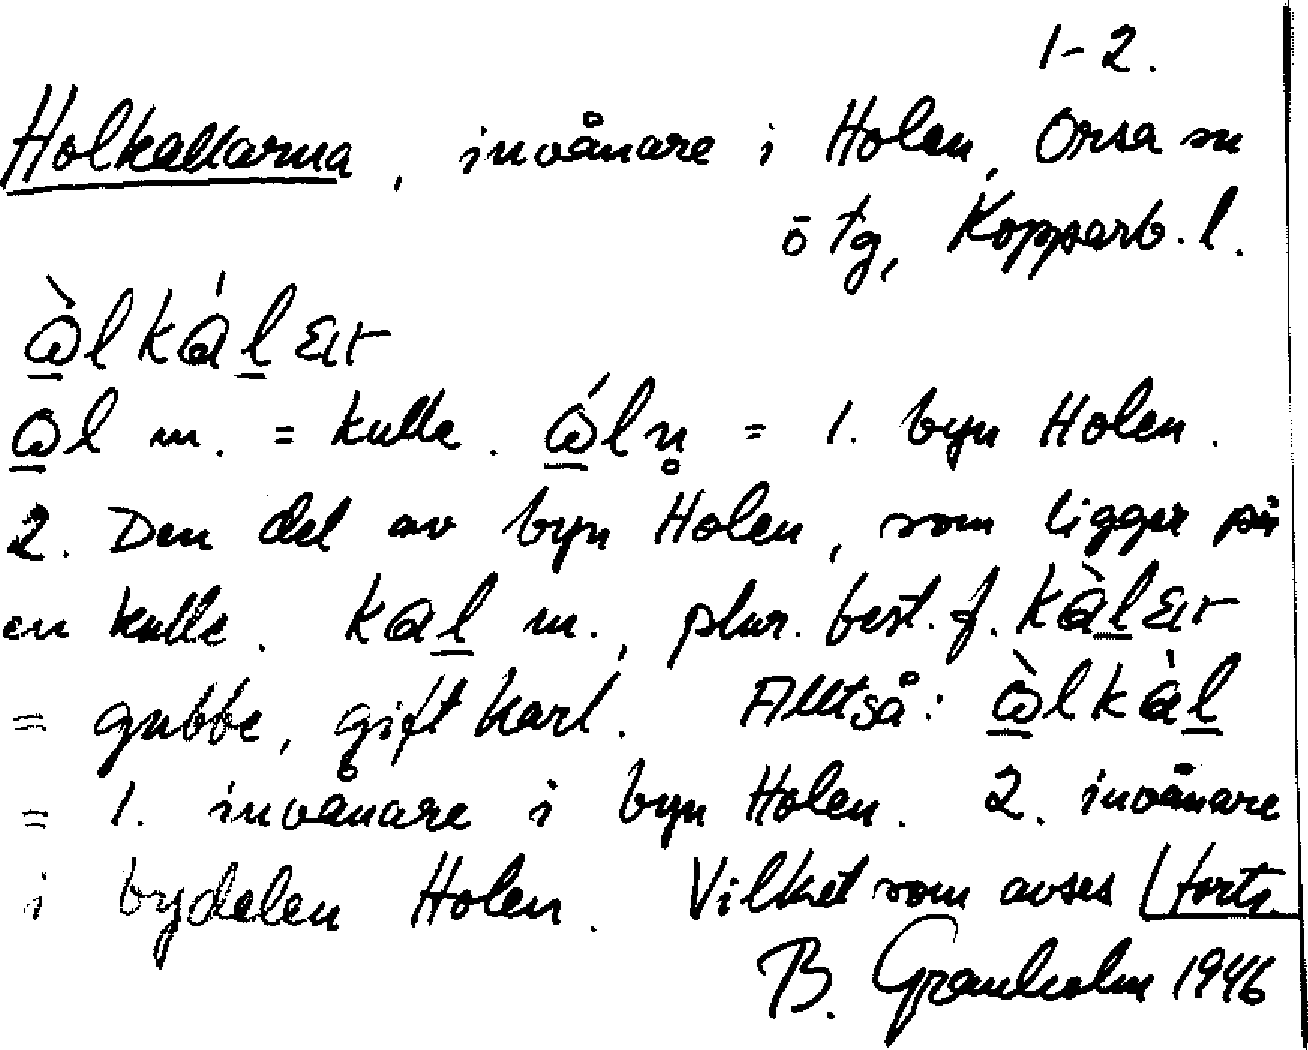 1-2.
Holkallarna, invånare i Holen, Orsa sn
ö tg, Kopparb. l.
ὼ̲lkál̲ɛır
ω̲l m. = kulle. ώ̲ln̥ = 1. byn Holen.
2. Den del av byn Holen, som ligger på
en kulle. kal̲ m., plur. best. f. kàl̲ɛır
= gubbe, gift karl. Alltså: ὼ̲lkàl̲
= 1. invånare i byn Holen. 2. invånare
i bydelen Holen. Vilket som avses forts.
B. Granholm 1946